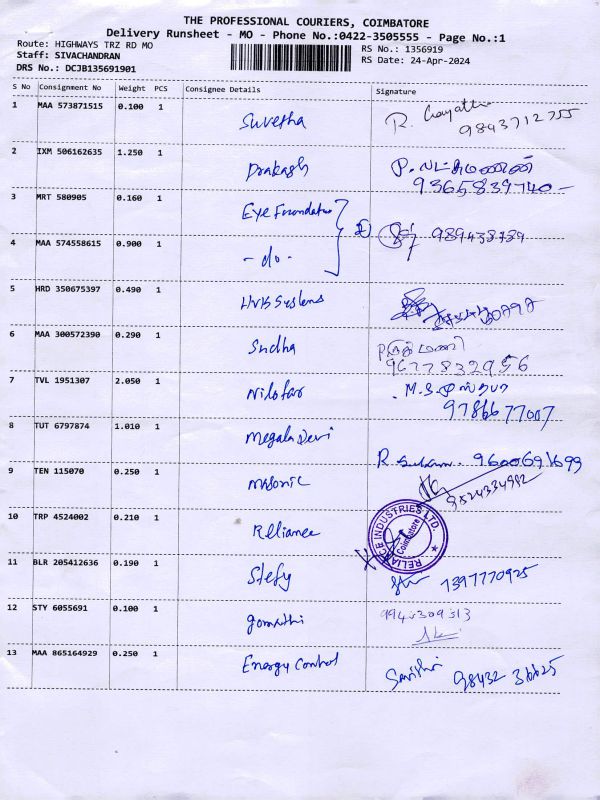 THE PROFESSIONAL COURIERS, COIMBATORE
Delivery Runsheet - MO - Phone No.:0422-3505555 - Page No.:1
Route: HIGHWAYS TRZ RD MO
RS No.: 1356919
Staff: SIVACHANDRAN
RS Date: 24-Apr-2024
DRS No.: DCJB135691901
S No Consignment No Weight PCS Consignee Details Signature
1 MAA 573871515 0.100 1 Suvetha R. Gayathri
9843712755
2 IXM 506162635 1.250 1 Prakash P. லட்சுமணன்
9365839740
3 MRT 580905 0.160 1 Eye Foundation
989438739
4 MAA 574558615 0.900 1 - do -
5 HRD 350675397 0.490 1 Systems
6 MAA 300572390 0.290 1 Sudha
9677832956
7 TVL 1951307 2.050 1 Nilofar M.S.முஸ்தபா
9786677007
8 TUT 6797874 1.010 1 Megala Devi
R 9600691699
9 TEN 115070 0.250 1 Masonic
9524334982
10 TRP 4524002 0.210 1 Reliance
RELIANCE INDUSTRIES LTD.
Coimbatore
11 BLR 205412636 0.190 1 Stefy 7397770925
12 STY 6055691 0.100 1 gomathi
13 MAA 865164929 0.250 1 Energy Control
98432 36625